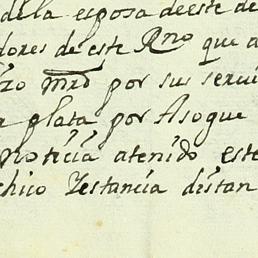 de la esposa de este de
dores de este Rno que a
izo mrd por sus servi
plata por Asogue
noticia atenido este
chico Yestancia distan